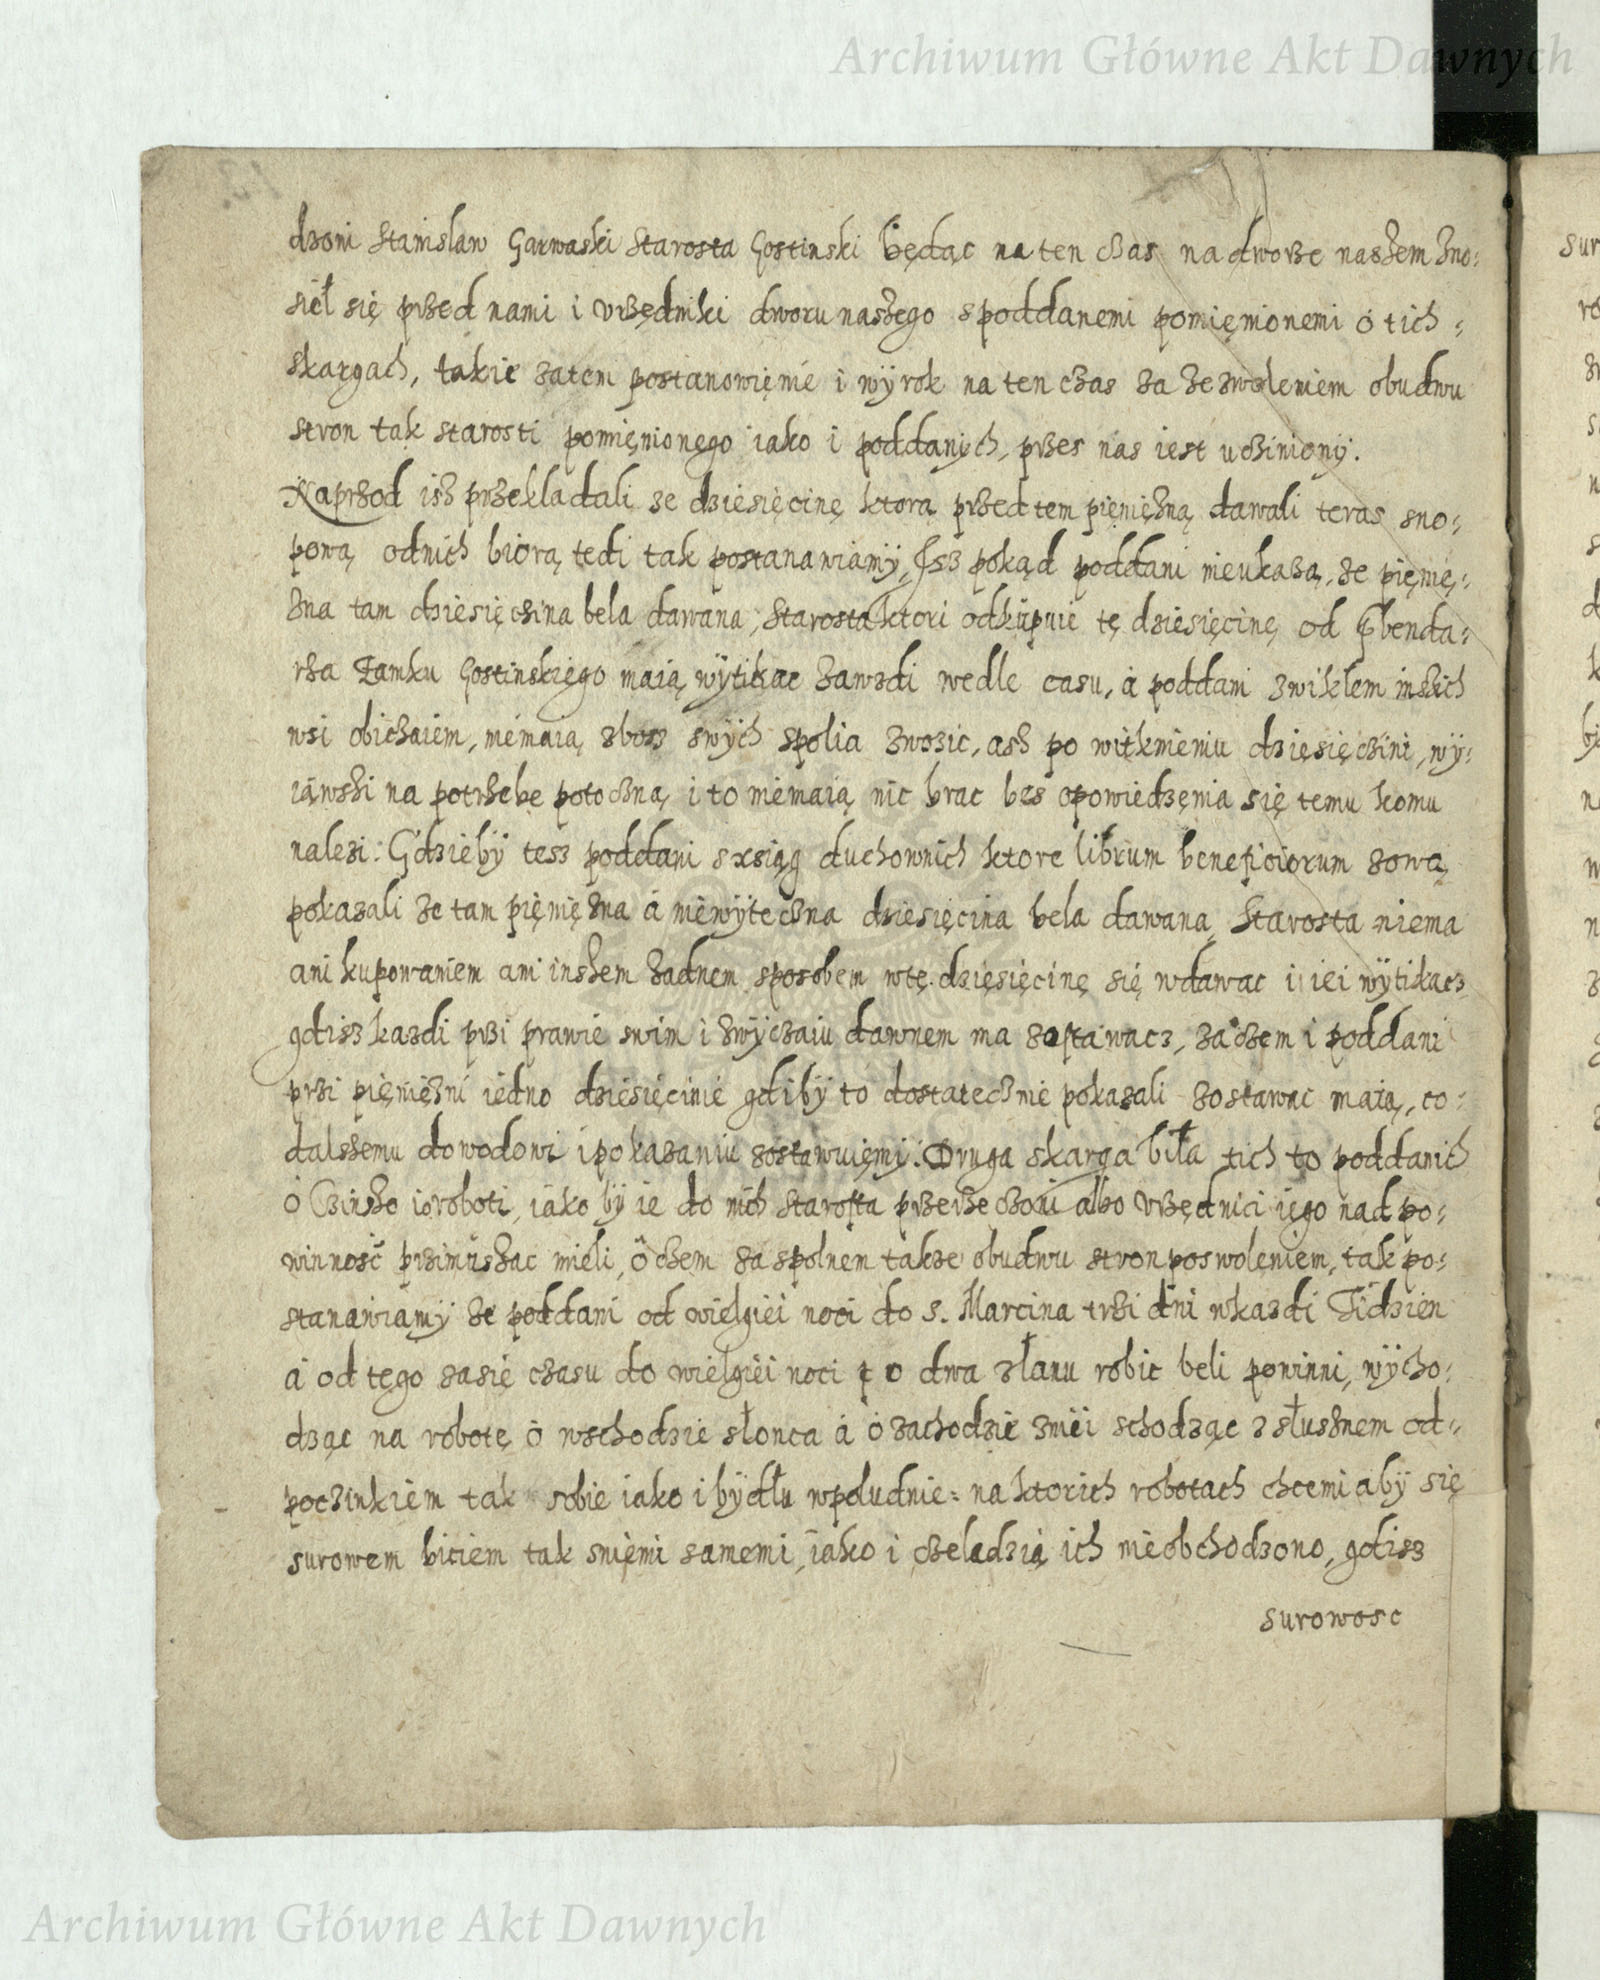 Archiwum Główne Akt Dawnych
dzoni Stanislaw Garwaski Starosta Gostinski będąc na ten czas na dworze naszem zno-
sieł się przed nami i vrzędniki dworu naszego s poddanemi pomięnionemi o tich
skargach, takie zatem postanowięnié i wÿrok na ten czas za zezwoleniem obudwu
stron tak starosti pomięnionego iako i poddanÿch, przes nas iest uczinionÿ.
Naprzod isz przekladali ze dziesięcinę ktorą przed tem pięniężną dawali teras sno-
pową odnich biorą, tedi tak postanawiamÿ, Isz pokąd poddani nieukazą, ze pięnię-
zna tam dziesięczina bela dawana, Starosta ktori odkupuie tę dziesięcinę od Prbenda-
rza Zamku Gostinskięgo maią wÿtikac zawzdi wedle casu, á poddani zwiklem inszich
wsi obiczaiem, niemaią zbosz swÿch spolia zwozic, asz po witknieniu dzięsięczini, wÿ-
iąwszi na potrzebę potoczną, i to niémaią nic brac bes opowiedzęnia się temu komu
nalezi: Gdziebÿ tesz poddani s xsiąg duchownich ktore librum beneficiorum zową
pokazali ze tam pięnięzna á niewÿteczna dziesięcina bela dawana, Starosta niema
ani kupowaniem ani inszem żadnem sposobem wtę dzięsięcinę się wdawac i iei wÿtikacz
gdisz kazdi przi prawie swim i zwÿczaiu dawnem ma zostawacz, zaczem i poddani
przi pięnięzni iedno dziesięcinie gdibÿ to dostatecznie pokazali zostawac maią, co
dalszemu dowodowi i pokazaniu zostawuięmi. Druga skarga biła tich to poddanich
o Czinsze i o roboti, iako bÿ ie do nich starosta przerzeczoni albo vrzędnici iego nad po-
winnosć przimuszac mieli, o czem za spolnem takze obudwu stron poswoleniem, tak po-
stanawiamÿ ze poddani od wielgiei noci do s. Marcina trzi dni wkazdi Tidzien
á od tęgo zasię czasu do wielgiei noci po dwa z łanu robic beli powinni, wÿcho-
dząc na robotę o wschodzie słonca á o zachodzie zniei schodząc z słusznem od-
poczinkiem tak sobie iako i bÿdłu wpoludnie: na ktorich robotach chcemi abÿ się
surowem biciem tak sniemi samemi, iako i czeladzią ich nieobchodzono, gdisz
surowosc
Archiwum Główne Akt Dawnych